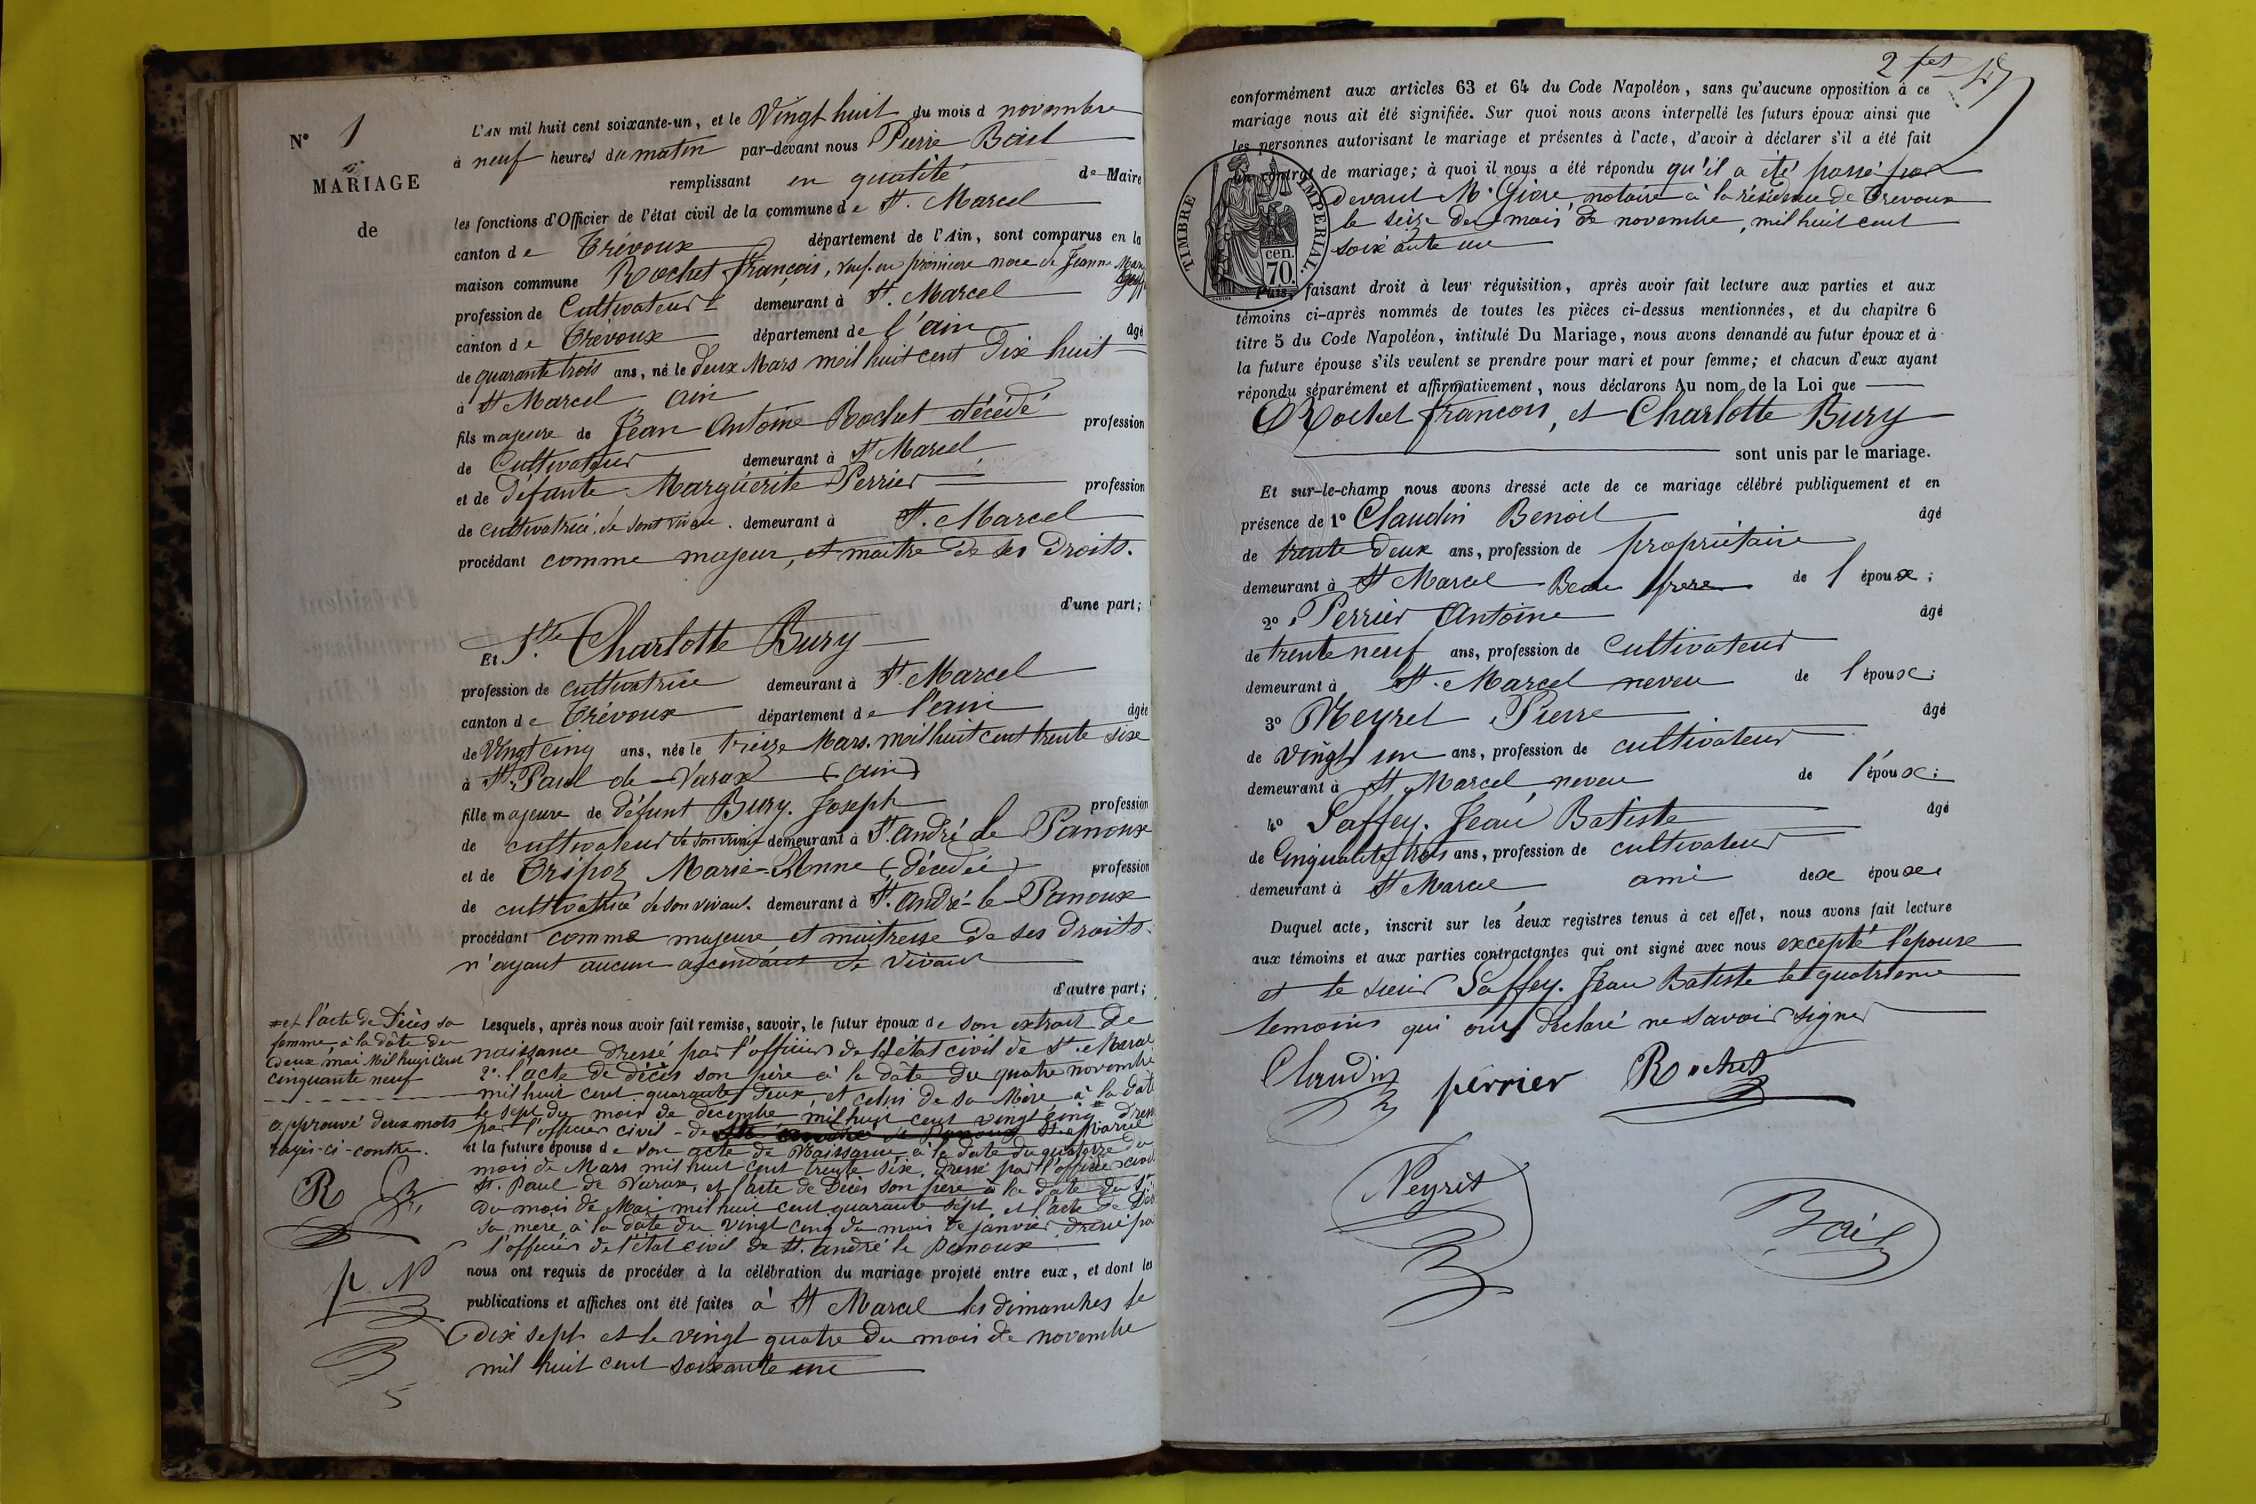 N° 1
MARIAGE
de
L'AN mil huit cent soixante-un, et le Vingt huit du mois d novembre
à neuf heures du matin par-devant nous Pierre Bail
remplissant en qualité de Maire
les fonctions d'Officier de l'état civil de la commune de St. Marcel
canton de Trévoux département de l'Ain, sont comparus en la
maison commune Rochet François, veuf en première noce de Jeanne Marie
profession de Cultivateur demeurant à St. Marcel
canton de Trévoux département de l'ain âgé
de quarante trois ans, né le deux Mars mil huit cent dix huit
à St Marcel ain
fils majeure de Jean Antoine Rochet décédé profession
de Cultivateur demeurant à St Marcel
et de défunte Marguérite Perrier profession
de cultivatrice de sont vivant. demeurant à St. Marcel
procédant comme majeur, et maitre de ses droits.
d'une part;
Et Charlotte Bury
profession de cultivatrice demeurant à St. Marcel
canton de Trévoux département de l'ain âgée
de Vingt cinq ans, née le treize Mars mil huit cent trente six
à St. Paul de Varax (ain)
fille majeure de défunt Bury. Joseph profession
de cultivateur de son vivant demeurant à St. andré le Panoux
et de Tripoz Marie-Anne (décédée) profession
de cultivatrice de son vivant. demeurant à St. andré-le-Panoux
procédant comme majeure et maitresse de ses droits.
n'ayant aucun ascendant de vivant
d'autre part;
Lesquels, après nous avoir fait remise, savoir, le futur époux de son extrait de
naissance dressé par l'officier de l'état civil de St. Marcel
2° l'acte de décès son père à la date du quatre novembre
mil huit cent quarante deux et celui de sa Mère à la date
le sept du mois de décembre mil huit cent vingt cinq
par l'officier civil de St. Marcel
et la future épouse de son acte de Naissance à la date du quatorze du
mois de Mars mil huit cent trente six, dressé par l'officier civil
St. Paul de Varax, et l'acte de Décès son père à la date du
du mois de Mai mil huit cent quarante sept, et l'acte de
sa mère à la date du vingt cinq du mois de janvier, dressé par
l'officier de l'état civil de St. andré le panoux
nous ont requis de procéder à la célébration du mariage projeté entre eux, et dont les
publications et affiches ont été faites à St Marcel les dimanches le
dix sept et le vingt quatre du mois de novembre
mil huit cent soixante un
et l'acte de Décès sa
femme, à la date du
deux mai Mil huit cent
cinquante neuf
approuvé deux mots
rayés-ci-contre.
R
p N
B
2
conformément aux articles 63 et 64 du Code Napoléon, sans qu'aucune opposition à ce
mariage nous ait été signifiée. Sur quoi nous avons interpellé les futurs époux ainsi que
les personnes autorisant le mariage et présentes à l'acte, d'avoir à déclarer s'il a été fait
un contrat de mariage; à quoi il nous a été répondu qu'il a été passé par
devant Me notaire à la résidence de Trevoux
le seize du mois de novembre, mil huit cent
soixante un
TIMBRE IMPERIAL.
70 cen.
Puis, faisant droit à leur réquisition, après avoir fait lecture aux parties et aux
témoins ci-après nommés de toutes les pièces ci-dessus mentionnées, et du chapitre 6
titre 5 du Code Napoléon, intitulé Du Mariage, nous avons demandé au futur époux et à
la future épouse s'ils veulent se prendre pour mari et pour femme; et chacun d'eux ayant
répondu séparément et affirmativement, nous déclarons Au nom de la Loi que
Rochet françois, et Charlotte Bury
sont unis par le mariage.
Et sur-le-champ nous avons dressé acte de ce mariage célébré publiquement et en
présence de 1° Claudin Benoit âgé
de trente deux ans, profession de propriétaire
demeurant à St Marcel Beau frere de l'époux;
2° Perrier Antoine âgé
de trente neuf ans, profession de cultivateur
demeurant à St. Marcel neveu de l'époux;
3° Neyret Pierre âgé
de vingt un ans, profession de cultivateur
demeurant à St Marcel neveu de l'époux;
4° Saffey. Jean Batiste âgé
de Cinquante trois ans, profession de cultivateur
demeurant à St Marcel ami de époux
Duquel acte, inscrit sur les deux registres tenus à cet effet, nous avons fait lecture
aux témoins et aux parties contractantes qui ont signé avec nous excepté l'épouse
et le sieur Saffey. Jean Batiste le quatrieme
temoins qui ont déclaré ne savoir signer
Claudin perrier Rochet
Neyret Bail